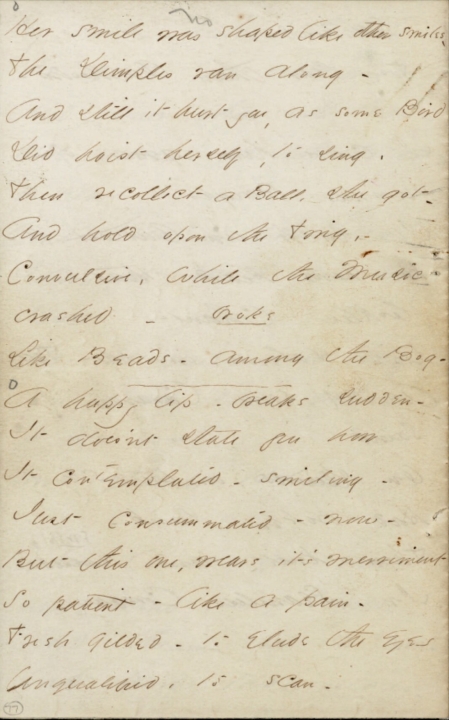 Her smile was shaped like other smiles
The Dimples ran along -
And still it hurt you, as some Bird
Did hoist herself, to sing,
Then recollect a Ball, she got -
And hold upon the Twig, -
Convulsive, while the Music
crashed - broke
Like Beads - among the Bog -
A happy lip - breaks sudden -
It doesn't state you how
It contemplated - smiling -
Just consummated - now -
But this one, wears it's merriment
So patient - like a pain -
Fresh gilded - to elude the Eyes
Unqualified, to scan -